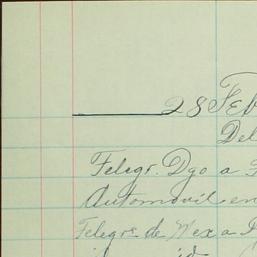 28 Feb
Del
Felegr. Dgo a
Automovil en
Felegrs de Mex a